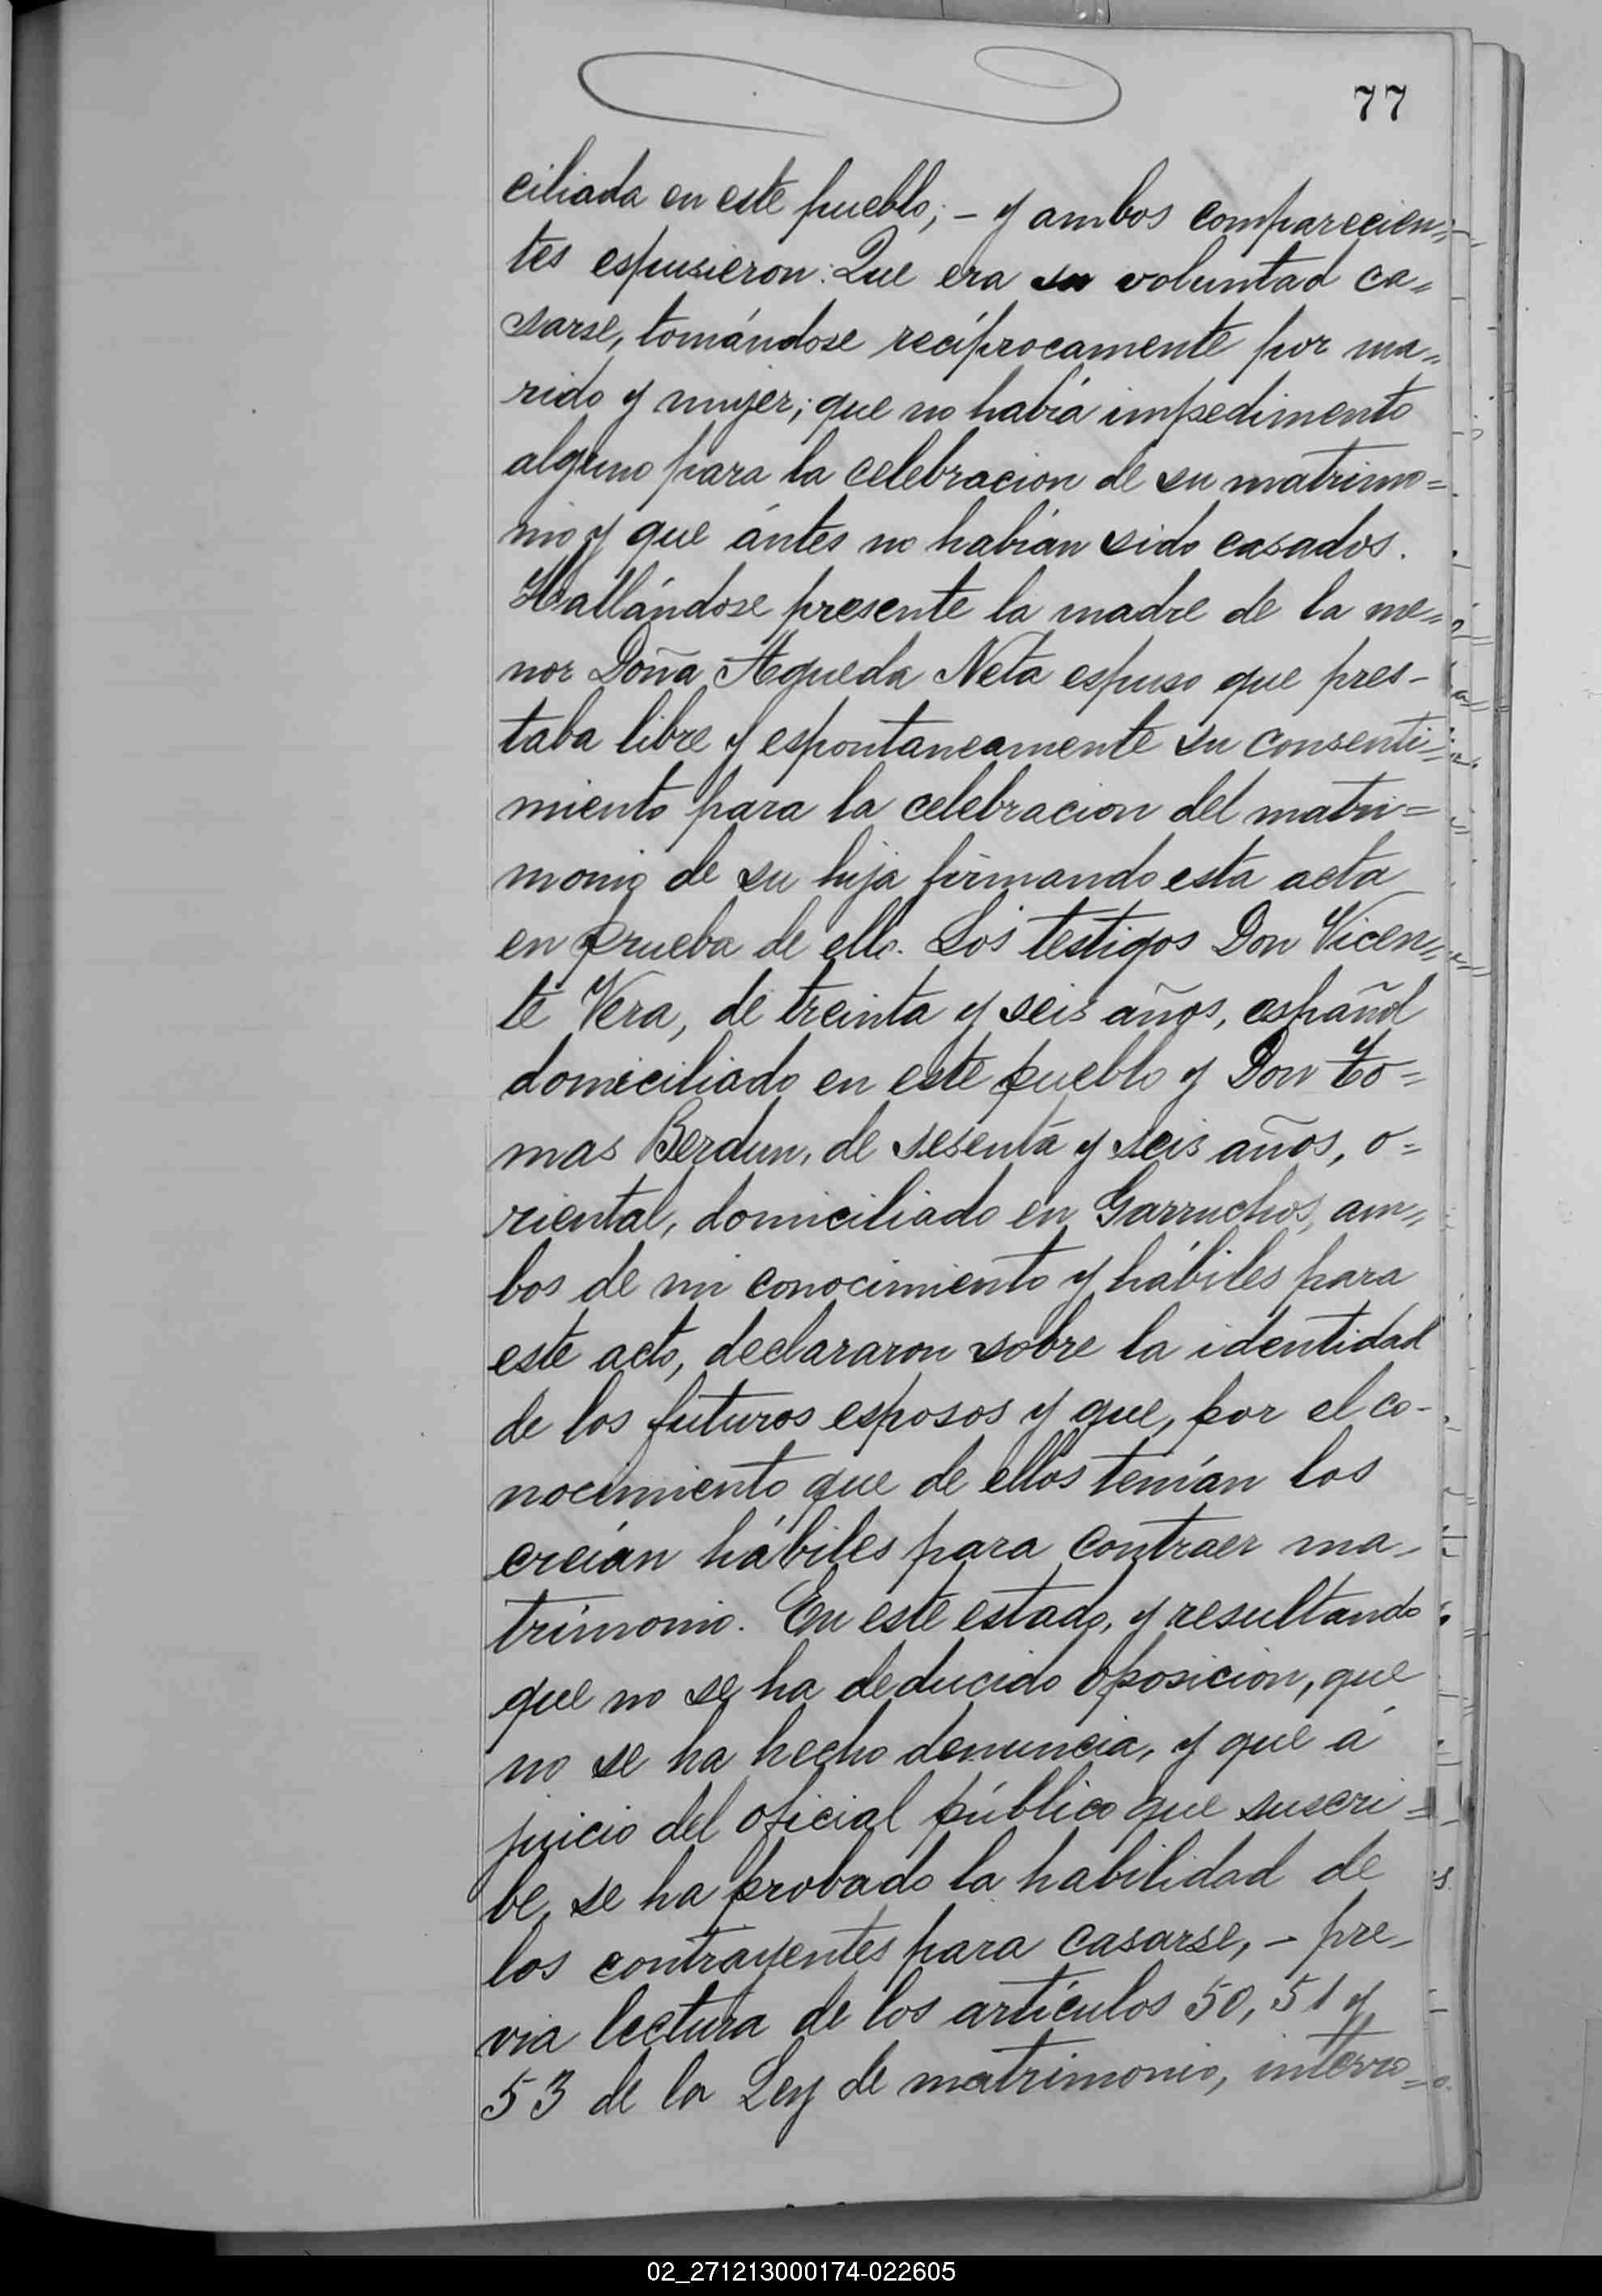 77
ciliada en este pueblo; - y ambos comparecien=
tes espusieron: Que era su voluntad ca=
sarse, tomándose recíprocamente por ma=
rido y mujer; que no había impedimento
alguno para la celebracion de su matrimo=
nio y que ántes no habían sido casados.
Hallándose presente la madre de la me=
nor Doña Agueda Neta espuso que pres-
taba libre y espontaneamente su consenti=
miento para la celebracion del matri=
monio de su hija firmando esta acta
en prueba de ello. Los testigos Don Vicen=
te Vera, de treinta y seis años, español
domiciliado en este pueblo y Don To=
mas Berdun, de sesenta y seis años, o=
riental, domiciliado en Garruchos, am=
bos de mi conocimiento y hábiles para
este acto, declararon sobre la identidad
de los futuros esposos y que, por el co-
nocimiento que de ellos tenían los
creían hábiles para contraer ma-
trimonio. En este estado, y resultando
que no se ha deducido oposicion, que
no se ha hecho denuncia, y que á
juicio del oficial público que suscri=
be, se ha probado la habilidad de
los contrayentes para casarse, - pre-
via lectura de los artículos 50, 51 y
53 de la Ley de matrimonio, interro=
02_271213000174-022605